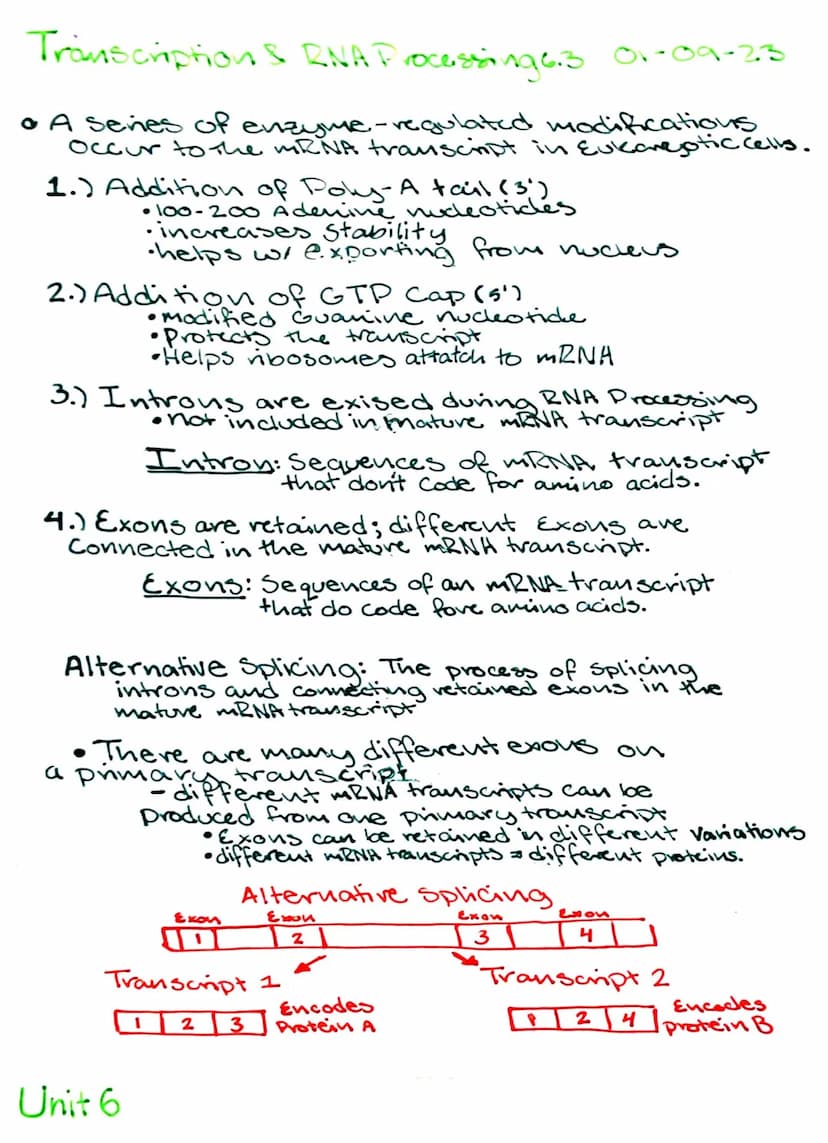 Transcription & RNA Processing 6.3 01-09-23
• A series of enzyme-regulated modifications
occur to the mRNA transcript in Eukareptic cells.
1.) Addition of Poly-A tail (3')
• 100-200 Adenine nucleotides
• increases stability
• helps w/ exporting from nucleus
2.) Addition of GTP Cap (5')
• modified Guanine nucleotide
• Protects the transcript
• Helps ribosomes attatch to mRNA
3.) Introns are exised during RNA Processing
• not included in mature mRNA transcript
Intron: Sequences of mRNA transcript
that don't code for amino acids.
4.) Exons are retained; different Exons are
Connected in the mature mRNA transcript.
Exons: Sequences of an mRNA transcript
that do code fore amino acids.
Alternative Splicing: The process of splicing
introns and connecting retained exons in the
mature mRNA transcript
• There are many different exons on
a primary transcript
- different mRNA transcripts can be
produced from one primary transcript
• Exons can be retained in different variations
• different mRNA transcripts = different proteins.
Alternative Splicing
Exon Exon Exon Exon
1 2 3 4
Transcript 1 Transcript 2
1 2 3 Encodes Protein A
1 2 4 Encodes protein B
Unit 6